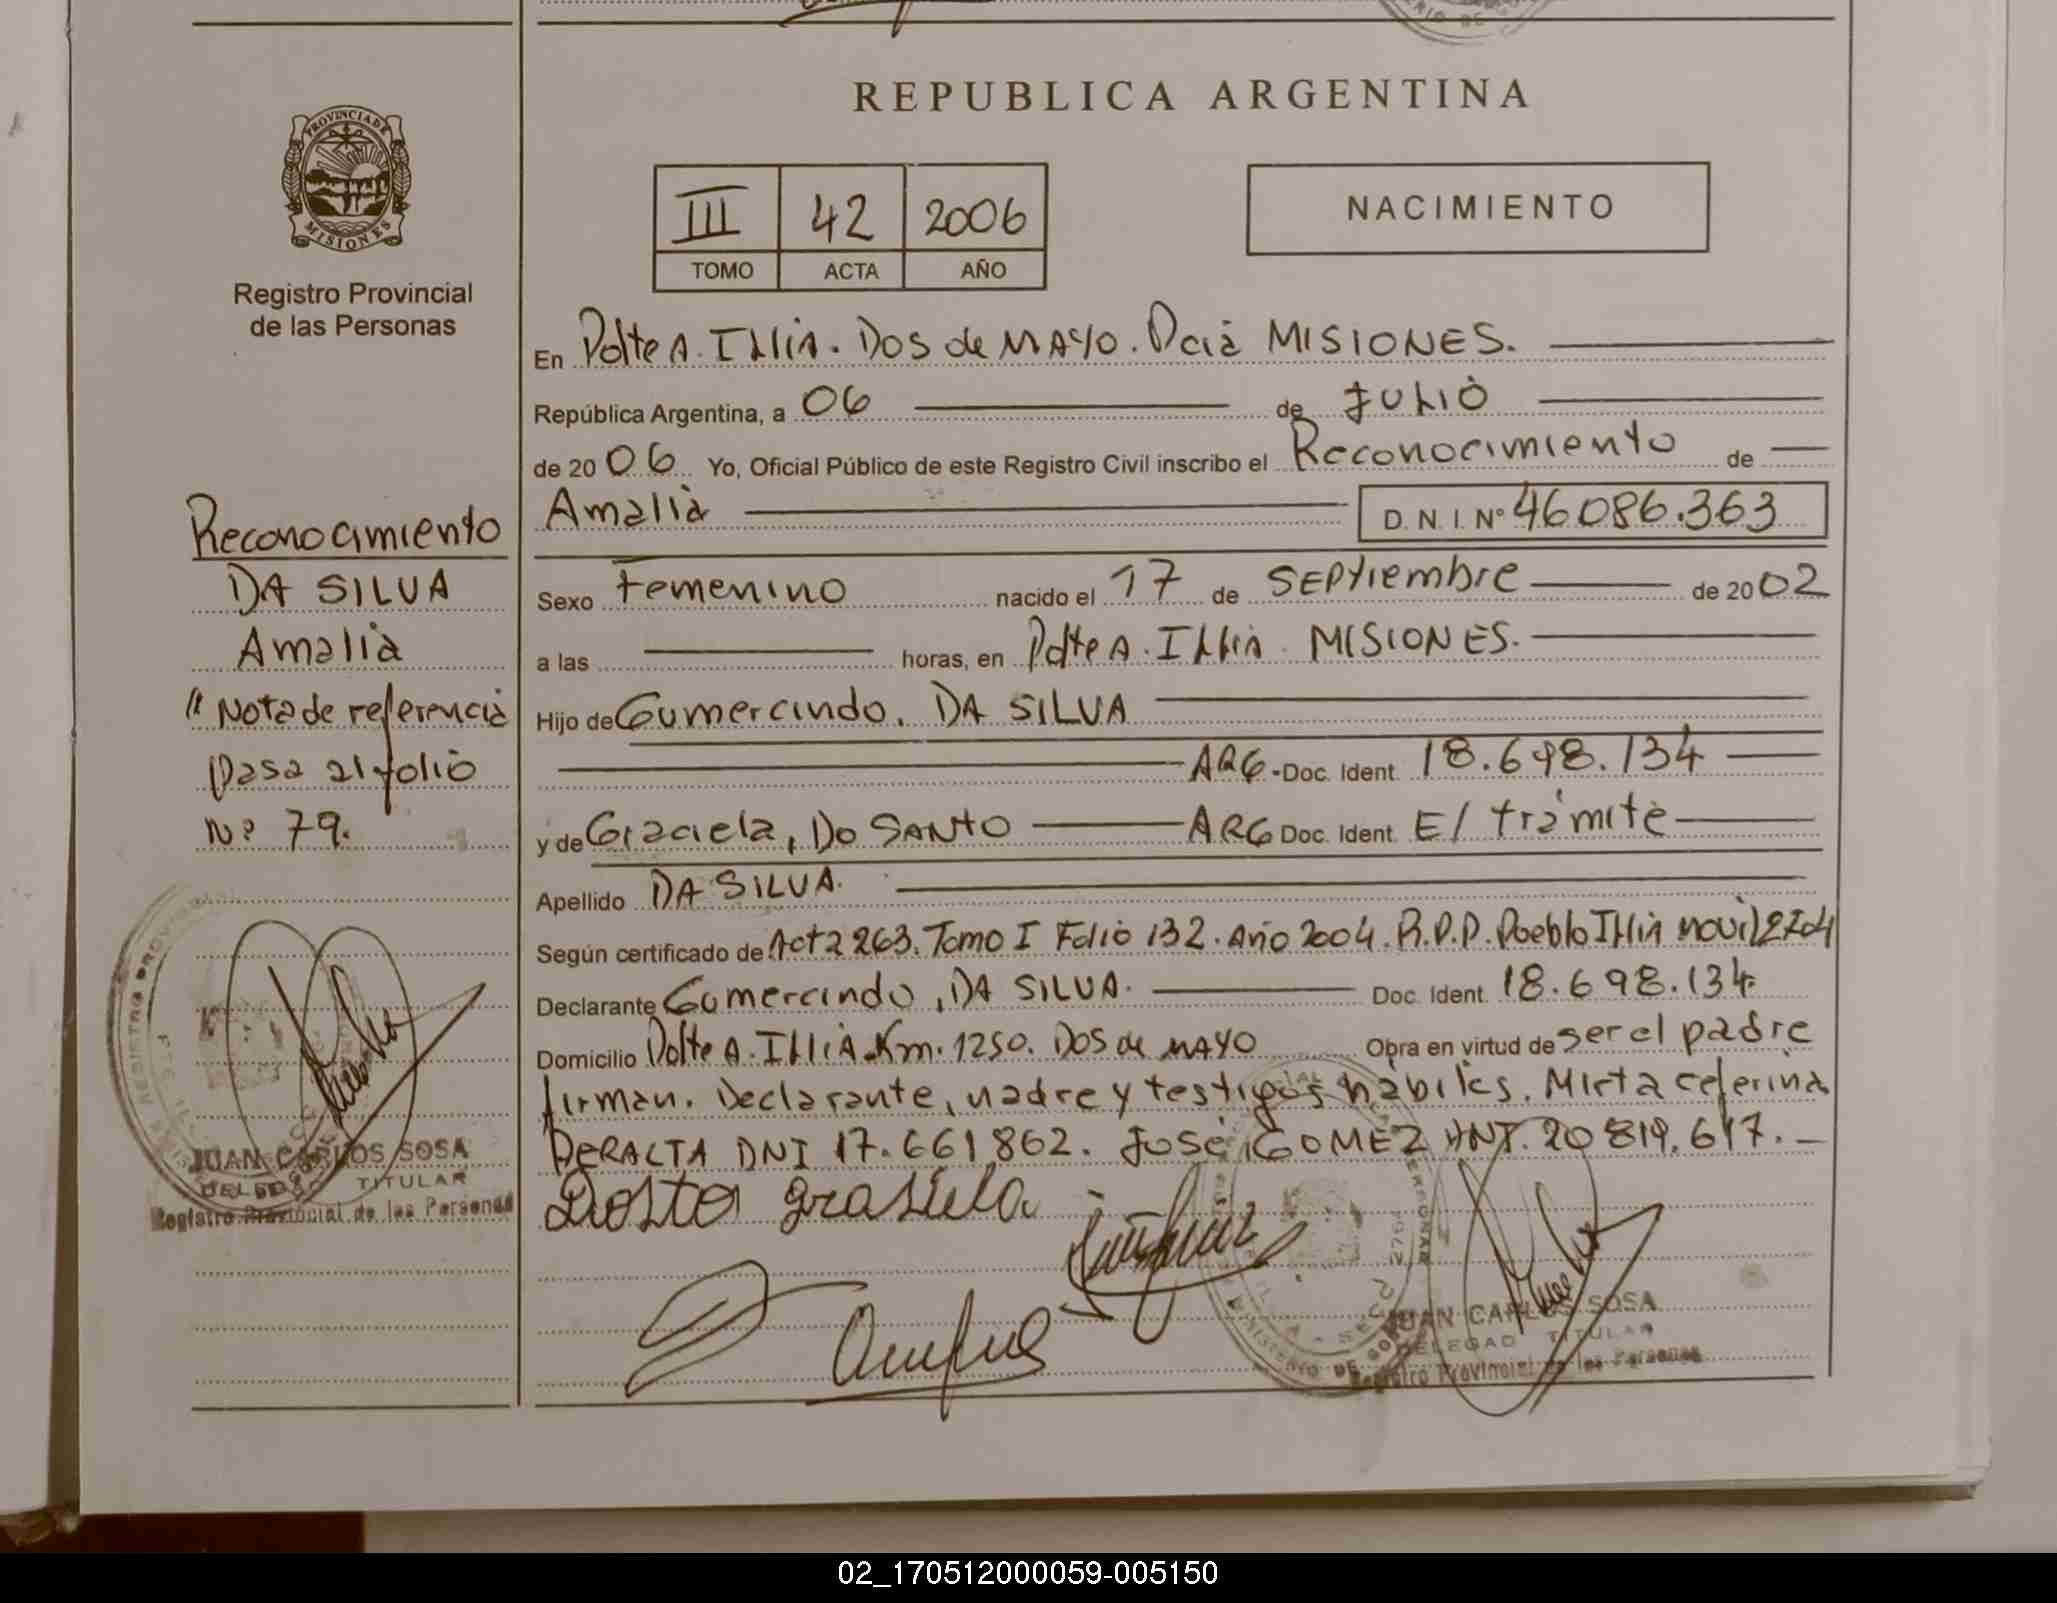 REPUBLICA ARGENTINA
PROVINCIA DE
MISIONES
Registro Provincial
de las Personas
III 42 2006
TOMO ACTA AÑO
NACIMIENTO
En Pdte A. Illia. Dos de MAYO. Pcià MISIONES.
República Argentina, a 06 de JULIO
de 20 06 Yo, Oficial Público de este Registro Civil inscribo el Reconocimiento de
Amalià D. N. I. N° 46086.363
Sexo Femenino nacido el 17 de SEPtiembre de 20 02
a las horas, en Pdte A. Illià. MISIONES.
Hijo de Gumercindo. DA SILVA
ARG - Doc. Ident. 18.698.134
y de Graciela, Do SANTO ARG Doc. Ident. E/ tràmite
Apellido DA SILVA.
Según certificado de Acta 263. Tomo I Folio 132. Año 2004. R.P.P. Pueblo Illia movil 2704
Declarante Gumercindo, DA SILVA. Doc. Ident. 18.698.134.
Domicilio Pdte A. Illià Km. 1250. Dos de MAYO Obra en virtud de ser el padre
firman. Declarante, madre y testigos hàbiles. Mirta ceferina
PERALTA DNI 17.661862. José GOMEZ DNI. 20819.617.
Dosto graSiela
JUAN CARLOS SOSA
DELEGAD TITULAR
Registro Provincial de las Personas
Reconocimiento
DA SILVA
Amalià
"Nota de referencià
Pasa al folio
Nº 79.
JUAN CARLOS SOSA
DELEGADO TITULAR
Registro Provincial de las Personas
02_170512000059-005150